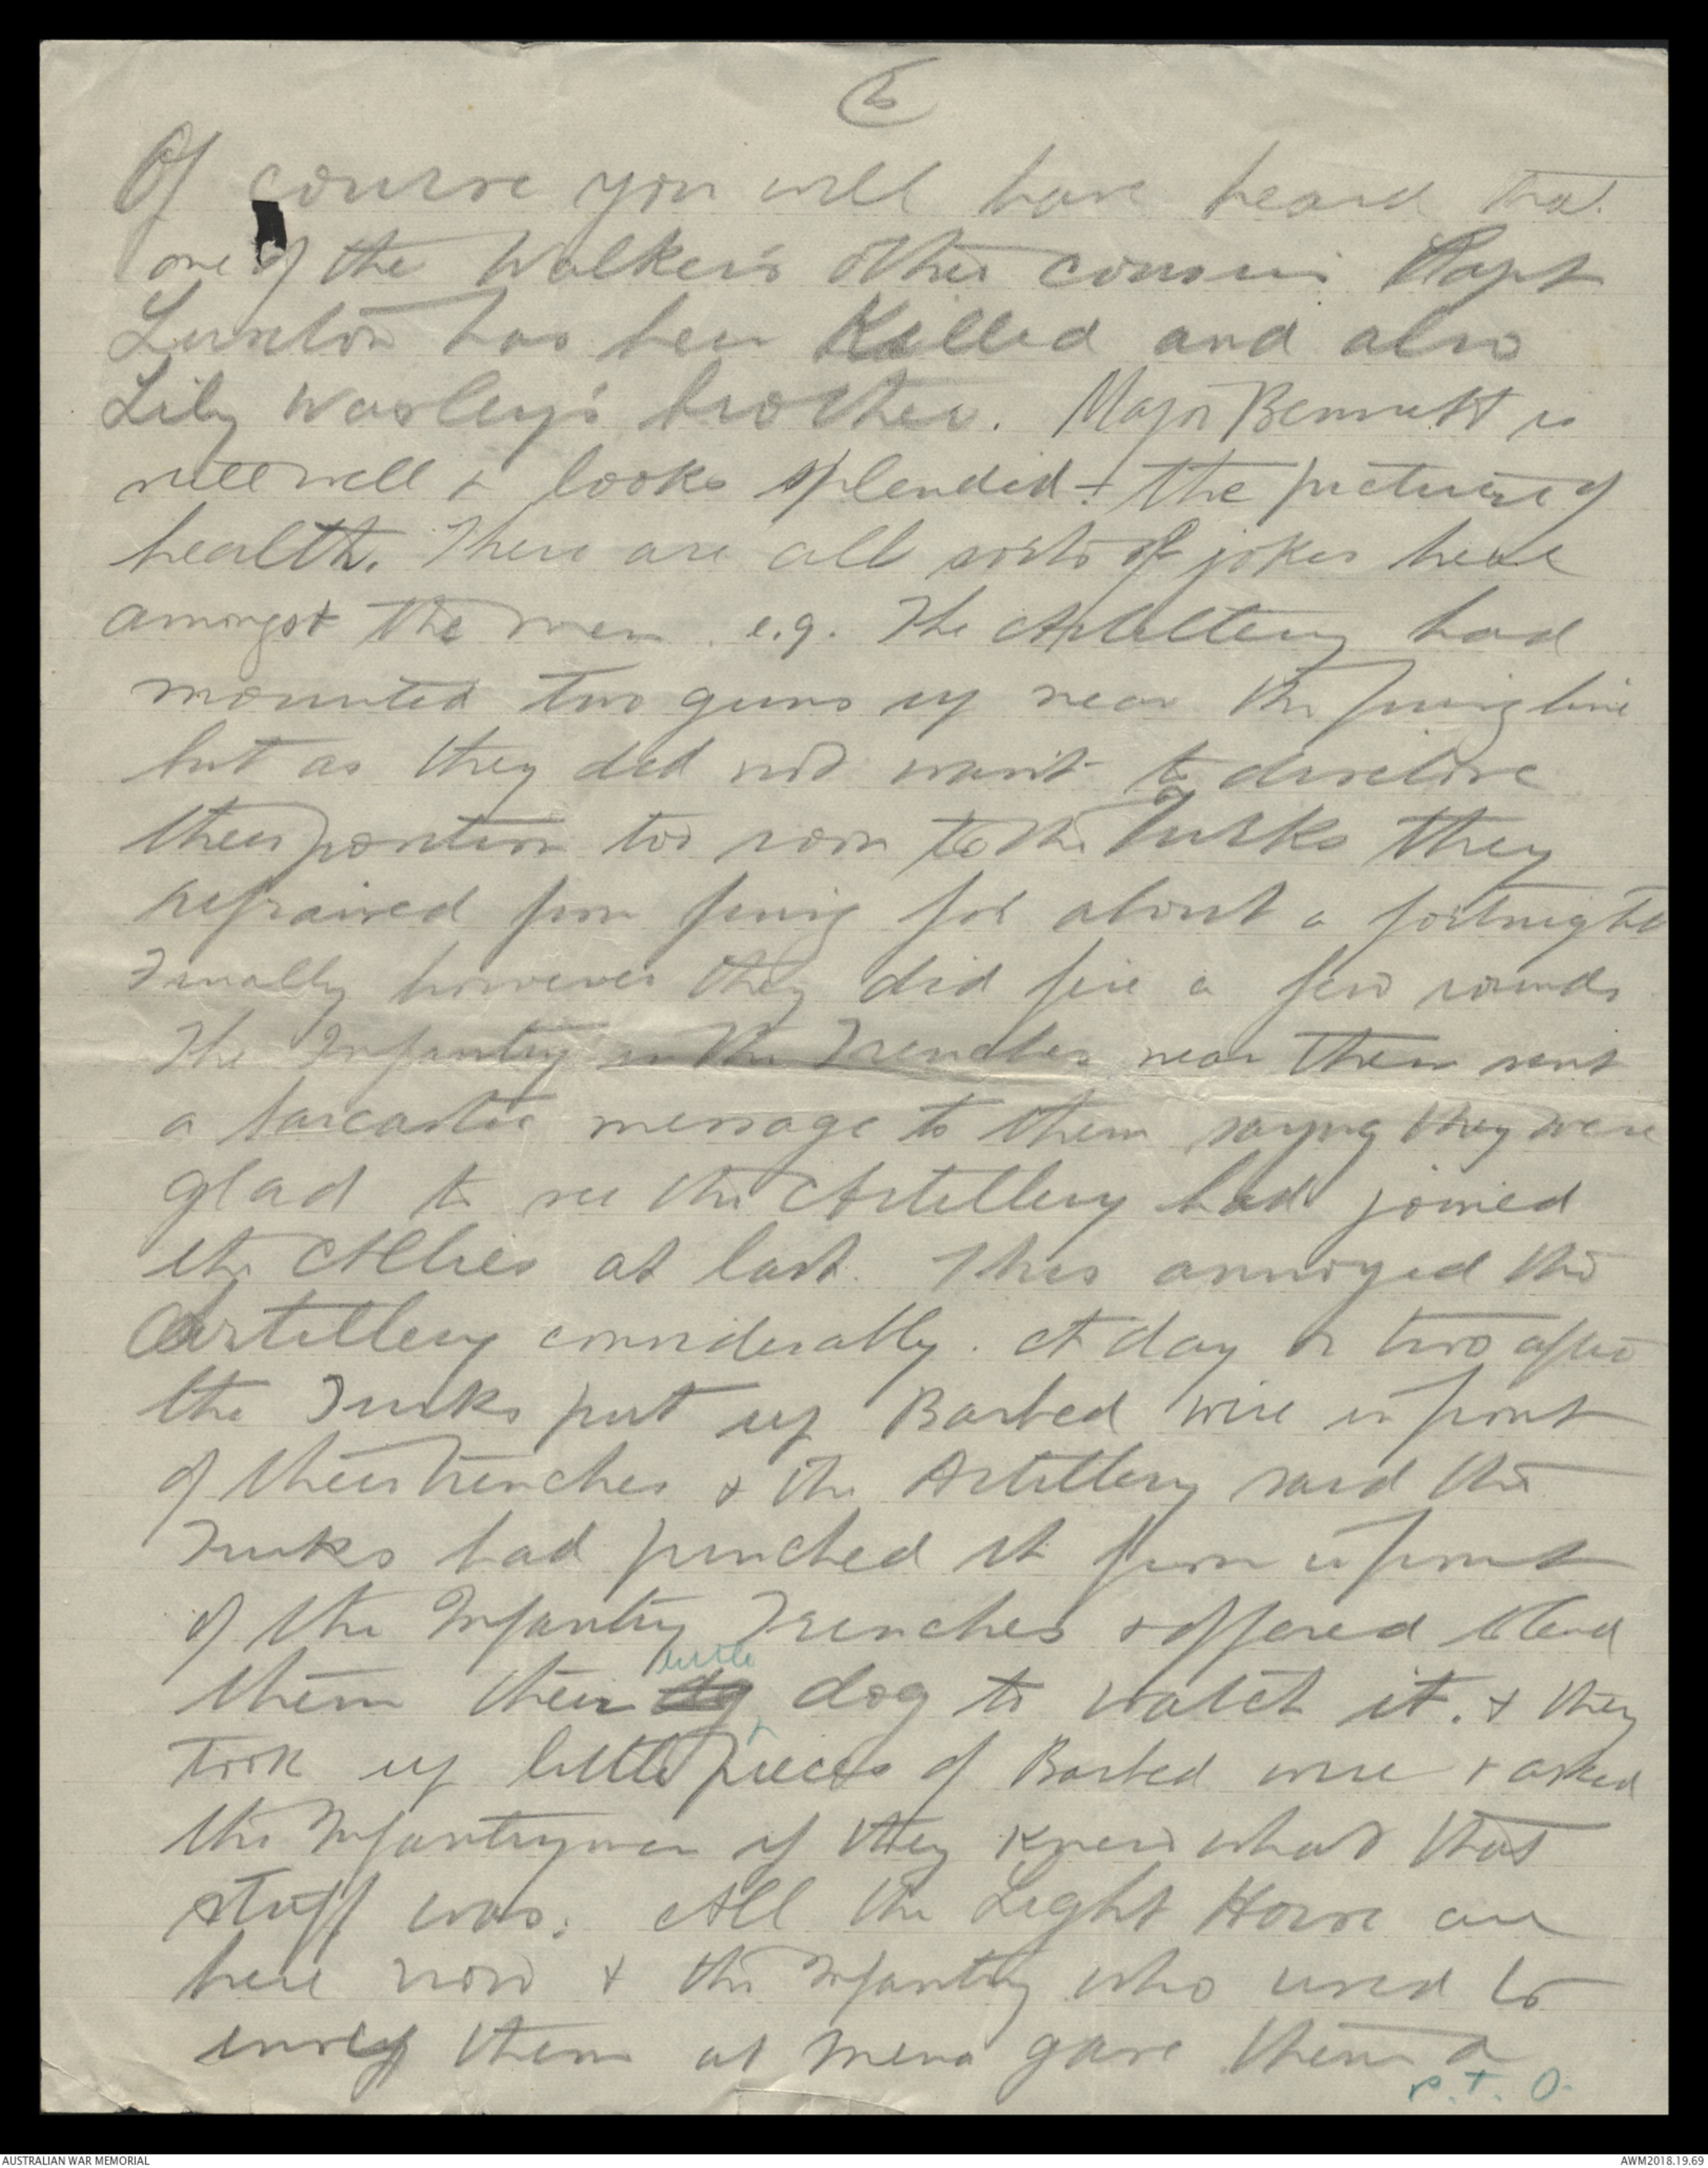 6
Of course you will have heard that
one of the Walker's other cousins Capt
Luxton has been Killed and also
Lily Wasley's brother. Major Bennett is
well & looks splendid - the picture of
health. There are all sorts of jokes here
amongst the men e.g. The Artillery had
mounted two guns up near the firing line
but as they did not want to disclose
their position too soon to the Turks they
refrained from firing for about a fortnight
Finally however they did fire a few rounds
The Infantry in the Trenches near them sent
a sarcastic message to them saying they were
glad to see the Artillery had joined
the Allies at last. This annoyed the
Artillery considerably. A day or two after
the Turks put up Barbed wire in front
of their trenches & the Artillery said the
Turks had pinched it from in front
of the Infantry Trenches & offered to lend
little
them their dog to watch it. & they
took up little pieces of Barbed wire & asked
the Infantrymen if they knew what that
stuff was. All the Light Horse are
here now & the Infantry who used to
envy them at Mena gave them a
P.T.O.
AUSTRALIAN WAR MEMORIAL
AWM2018.19.69